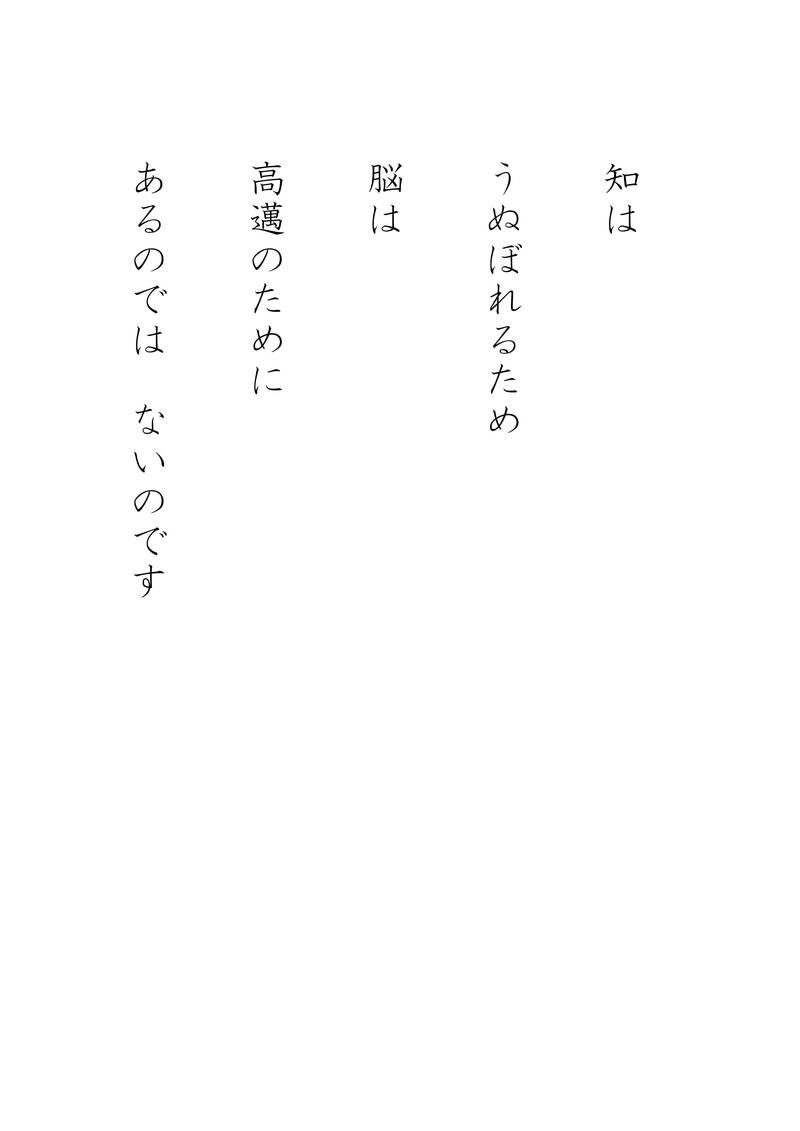 知は
うぬぼれるため
脳は
高邁のために
あるのでは　ないのです